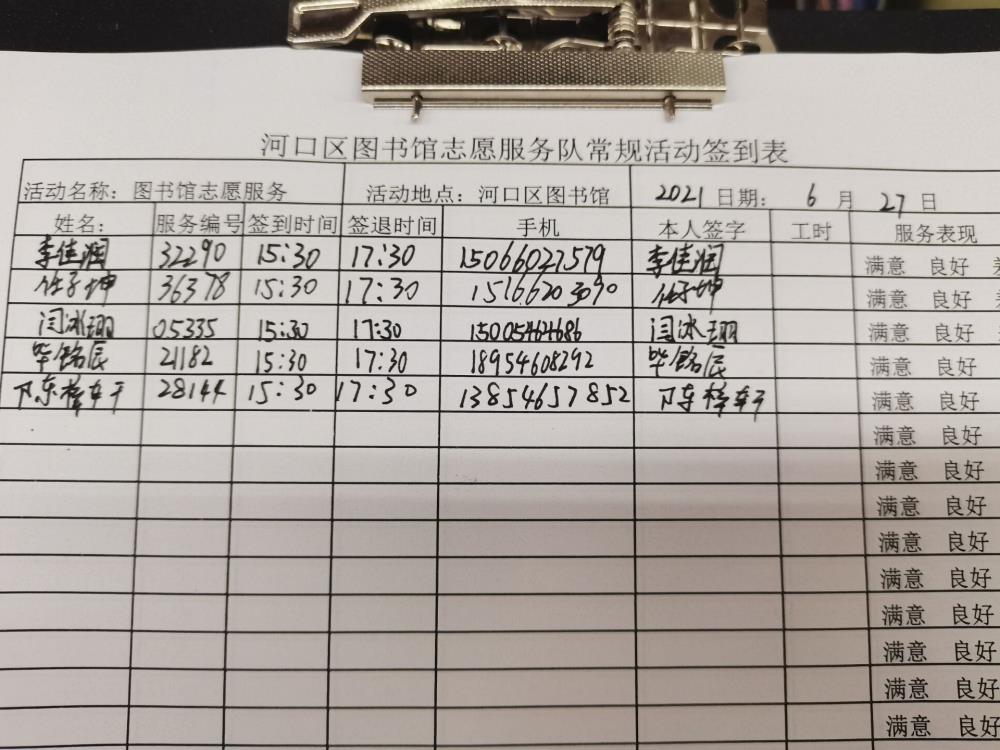 河口区图书馆志愿服务队常规活动签到表
活动名称：图书馆志愿服务 活动地点：河口区图书馆 2021 日期： 6 月 27 日
姓名： 服务编号 签到时间 签退时间 手机 本人签字 工时 服务表现
李佳润 32290 15:30 17:30 15066027579 李佳润 满意 良好 差
任子坤 36378 15:30 17:30 15166203090 任子坤 满意 良好 差
闫冰翔 05335 15:30 17:30 15005464686 闫冰翔 满意 良好
毕铭辰 21182 15:30 17:30 18954608292 毕铭辰 满意 良好
28144 15:30 17:30 13854657852 满意 良好
满意 良好
满意 良好
满意 良好
满意 良好
满意 良好
满意 良好
满意 良好
满意 良好
满意 良好